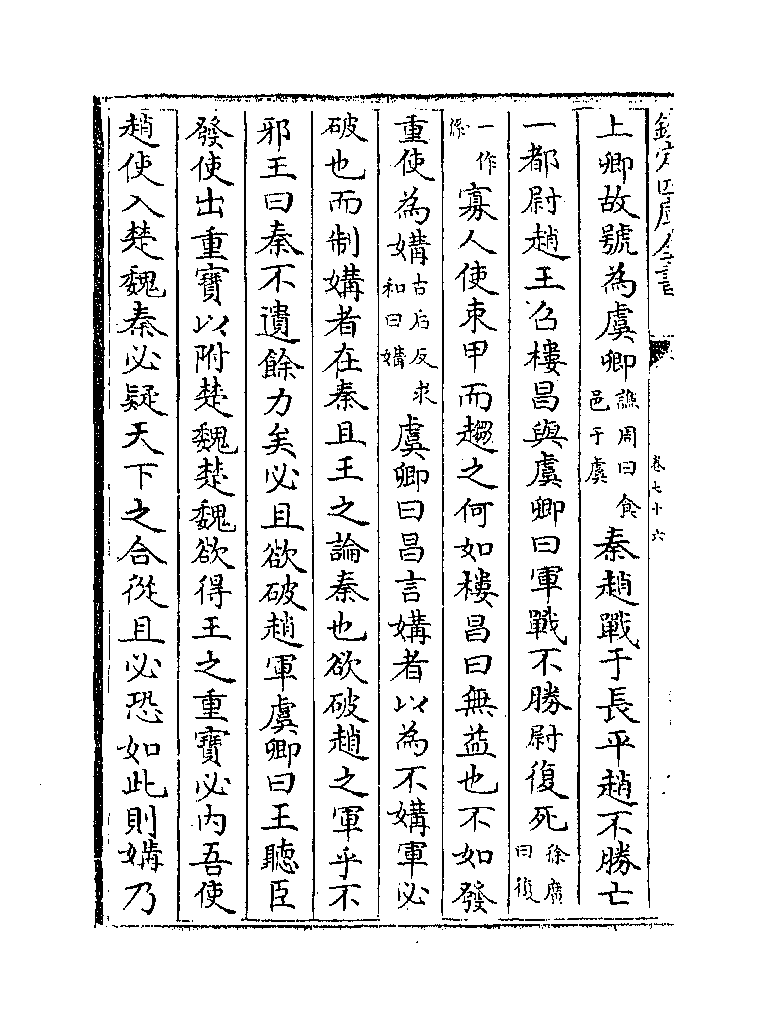 欽定四庫全書
卷七十六
上卿故號為虞卿譙周曰食邑于虞秦趙戰于長平趙不勝亡
一都尉趙王召樓昌與虞卿曰軍戰不勝尉復死徐廣曰復
一作係寡人使束甲而趨之何如樓昌曰無益也不如發
重使為媾古后反求和曰媾虞卿曰昌言媾者以為不媾軍必
破也而制媾者在秦且王之論秦也欲破趙之軍乎不
邪王曰秦不遺餘力矣必且欲破趙軍虞卿曰王聽臣
發使出重寶以附楚魏楚魏欲得王之重寶必内吾使
趙使入楚魏秦必疑天下之合從且必恐如此則媾乃